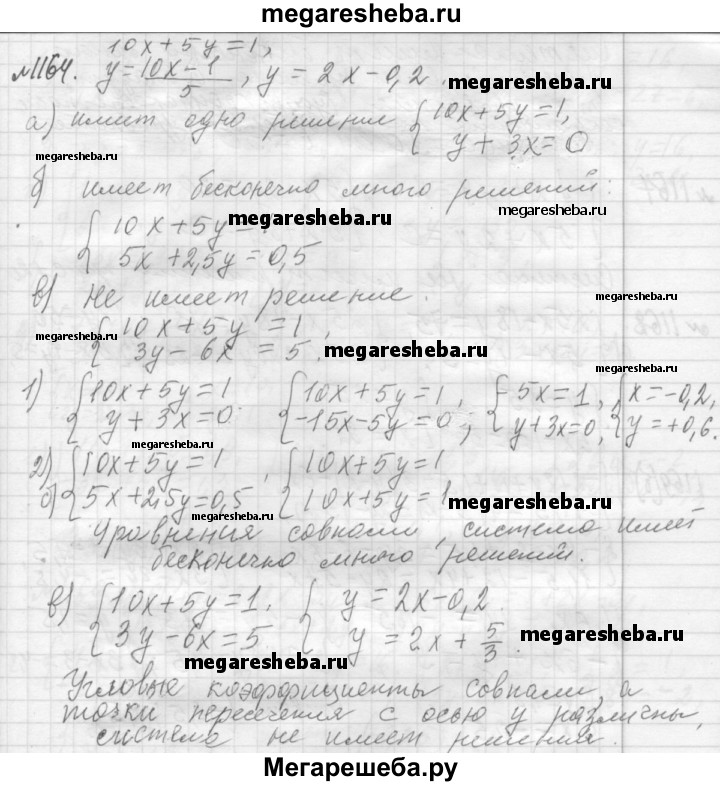 megaresheba.ru
10x+5y=1,
№1164. y=10x-1/5, y=2x-0,2. megaresheba.ru
а) имеет одно решение {10x+5y=1,
y+3x=0
megaresheba.ru
б) имеет бесконечно много решений:
megaresheba.ru
{10x+5y= megaresheba.ru
5x+2,5y=0,5
в) Не имеет решение.
megaresheba.ru
megaresheba.ru {10x+5y=1,
3y-6x=5. megaresheba.ru
1) {10x+5y=1 {10x+5y=1, {-5x=1, {x=-0,2,
y+3x=0 -15x-5y=0; y+3x=0, y=+0,6.
megaresheba.ru
2) {10x+5y=1, {10x+5y=1
б) 5x+2,5y=0,5 10x+5y=1 megaresheba.ru
megaresheba.ru
Уровнения совпали, система имеет
бесконечно много решений.
в) {10x+5y=1. {y=2x-0,2.
3y-6x=5 y=2x+5/3. megaresheba.ru
megaresheba.ru
Угловые коэффициенты совпали, а
точки пересечения с осью y различны,
система не имеет решения.
Мегарешеба.ру